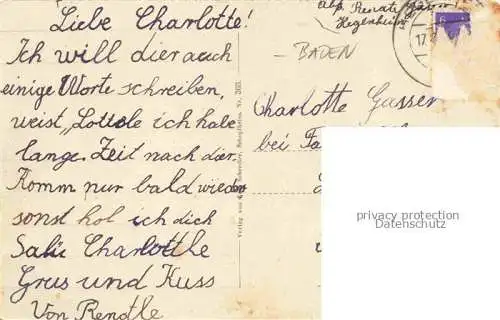 Liebe Charlotte!
Ich will dier auch
einige Worte schreiben,
weist „Lottole ich habe
lange Zeit nach dier.
Komm nur bald wieder
sonst hol ich dich
Salü Charlottle
Grus und Kuss
Von Rendle
Abs. Renate
Hegenheim
BADEN
17.
6
Charlotte Gasser
bei Fa
Verlag von
privacy protection
Datenschutz